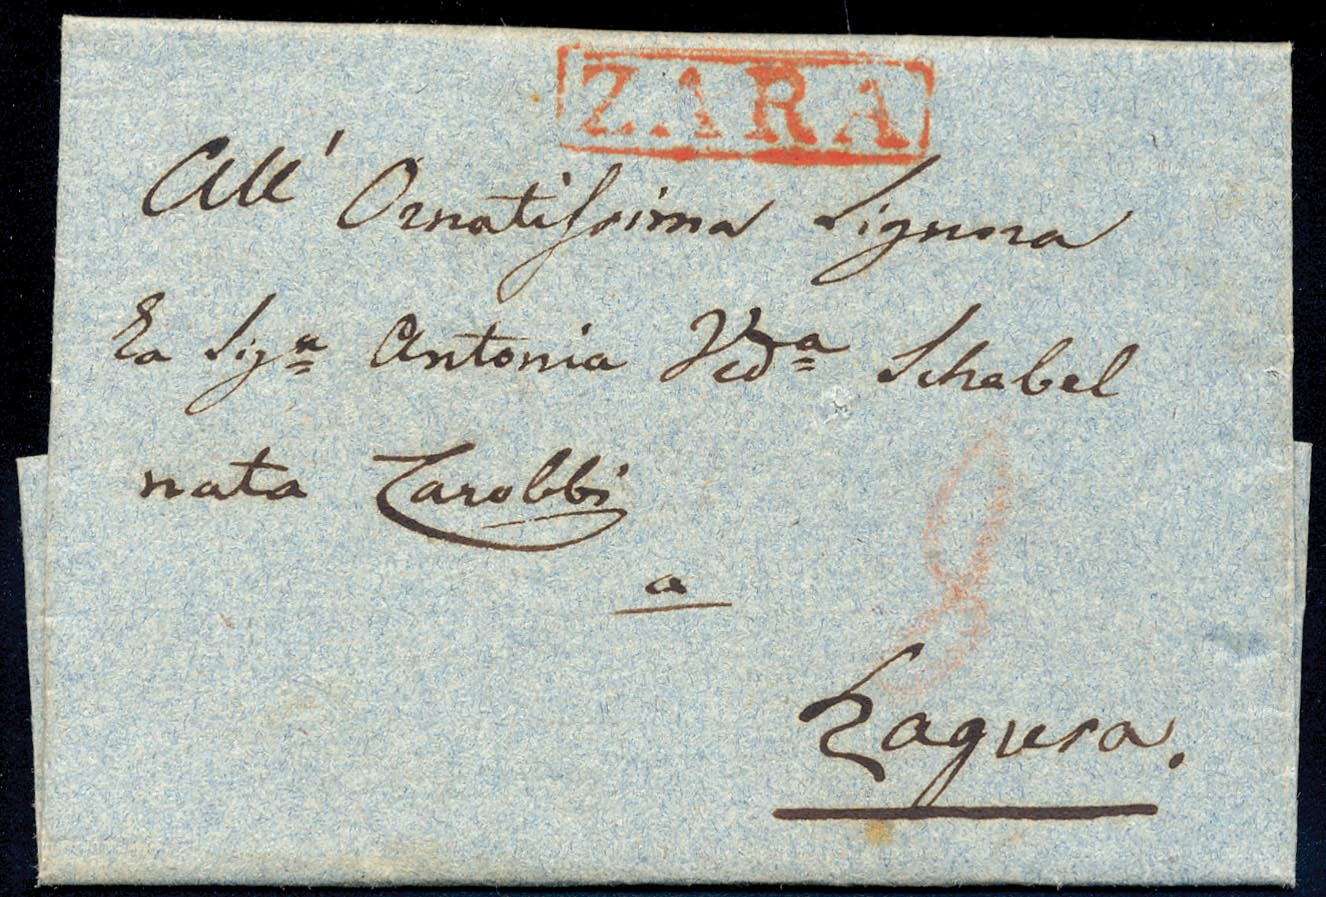 ZARA
All' Ornatissima Signora
La Sig.a Antonia Vedª Schabel
nata Zarobbi
a
Ragusa.